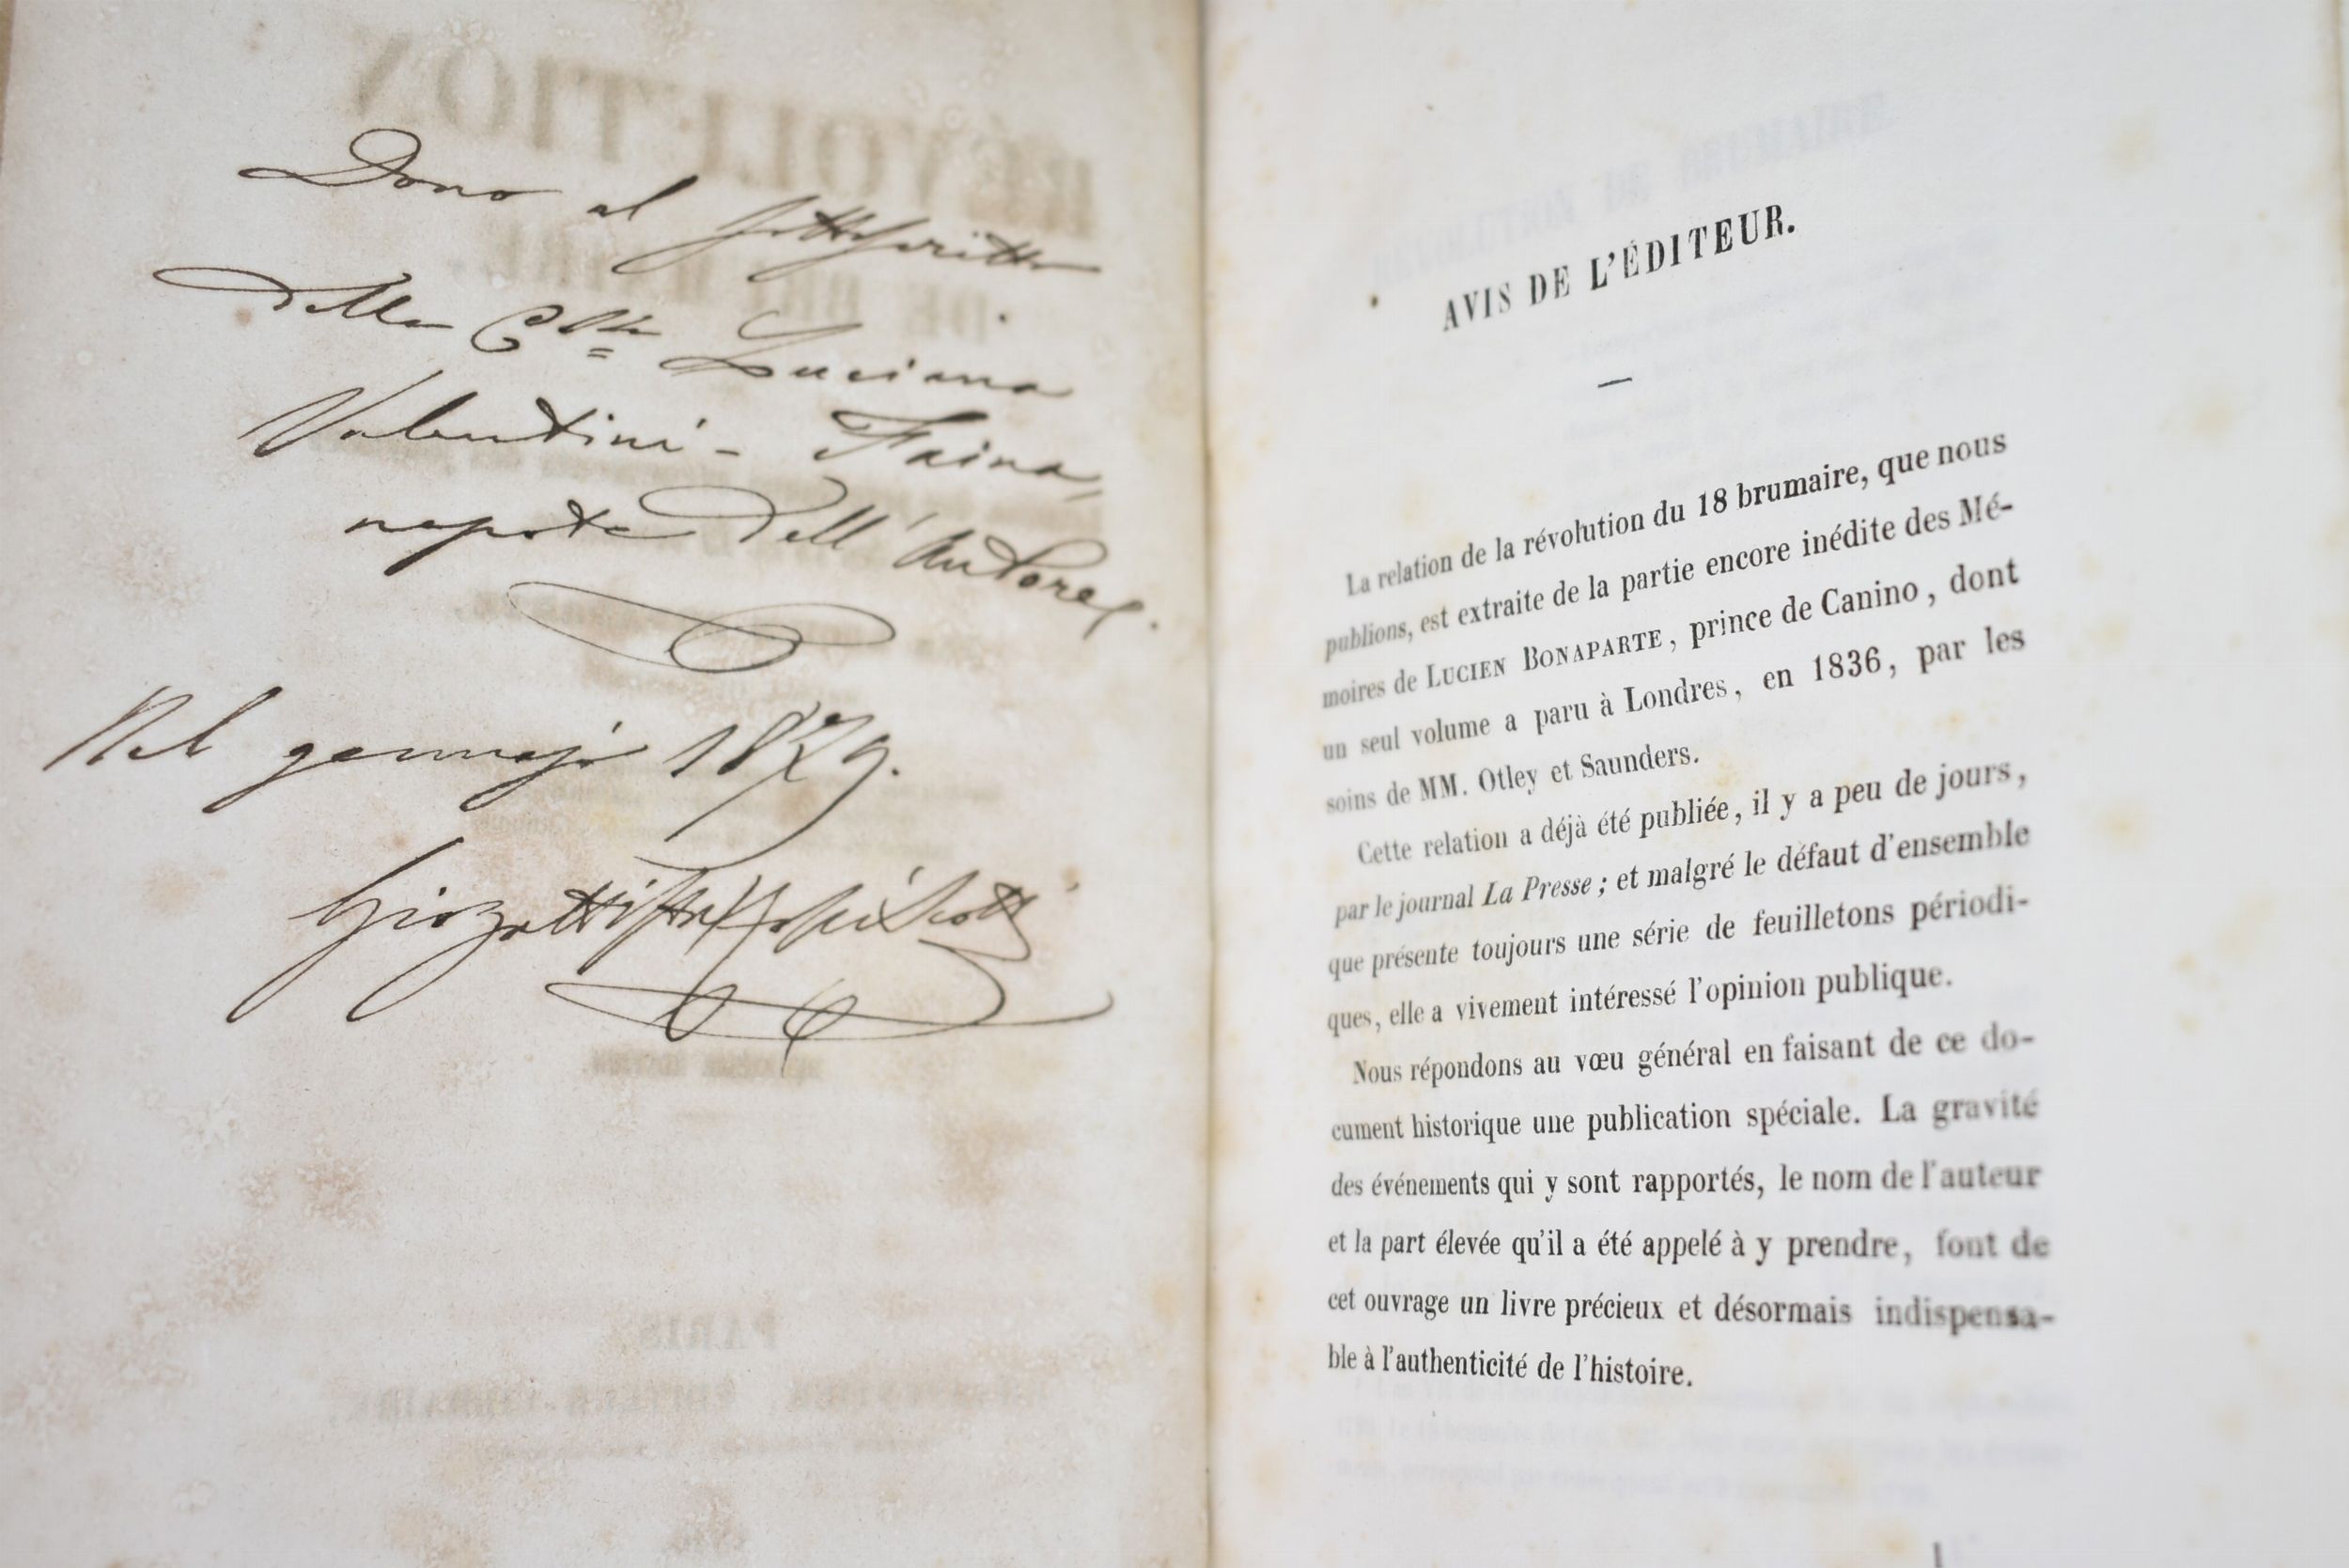 Dono al sottoscritto
della C.ssa Luciana
Valentini - Faina,
nepote dell'Autore.
Nel gennajo 1879.
AVIS DE L'ÉDITEUR.
—
La relation de la révolution du 18 brumaire, que nous
publions, est extraite de la partie encore inédite des Mé-
moires de LUCIEN BONAPARTE, prince de Canino, dont
un seul volume a paru à Londres, en 1836, par les
soins de MM. Otley et Saunders.
Cette relation a déjà été publiée, il y a peu de jours,
par le journal La Presse; et malgré le défaut d'ensemble
que présente toujours une série de feuilletons périodi-
ques, elle a vivement intéressé l'opinion publique.
Nous répondons au vœu général en faisant de ce do-
cument historique une publication spéciale. La gravité
des événements qui y sont rapportés, le nom de l'auteur
et la part élevée qu'il a été appelé à y prendre, font de
cet ouvrage un livre précieux et désormais indispensa-
ble à l'authenticité de l'histoire.
1